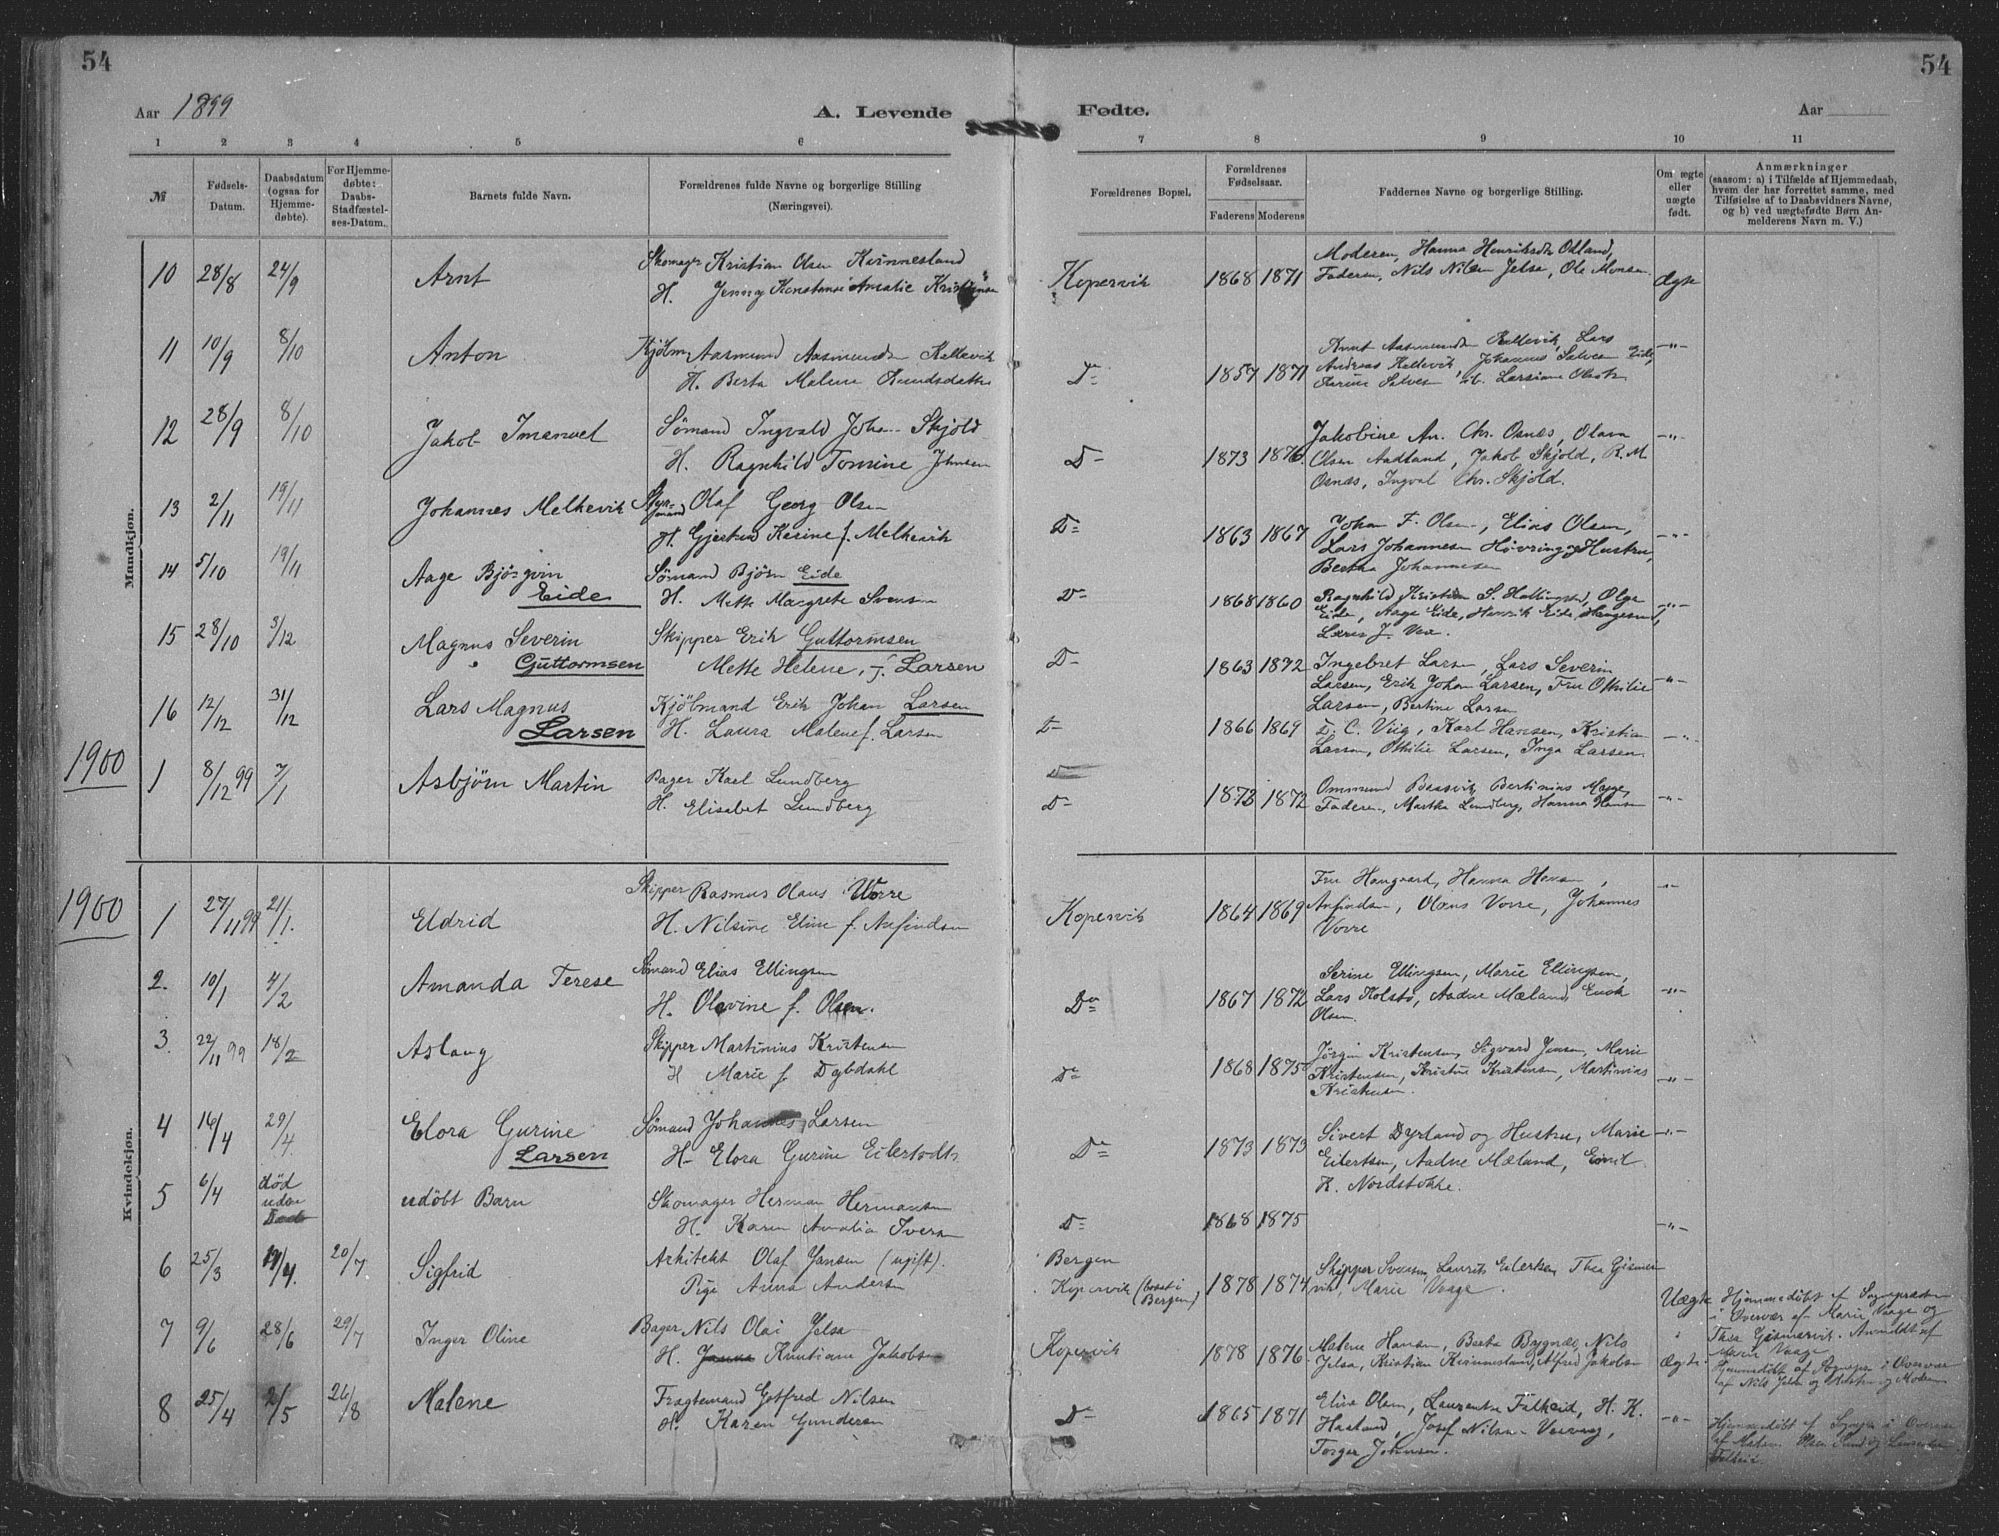 54
54
Aar 1899
A. Levende
Fødte.
Aar
1 2 3 4 5 6 7 8 9 10 11
№
Fødsels-Datum.
Daabsdatum (ogsaa for Hjemmedøbte).
For Hjemmedøbte: Daabs-Stadfæstelses-Datum.
Barnets fulde Navn.
Forældrenes fulde Navne og borgerlige Stilling (Næringsvei).
Forældrenes Bopæl.
Forældrenes Fødselsaar.
Faderens Moderens
Faddernes Navne og borgerlige Stilling.
Om ægte eller uægte født.
Anmærkninger
(saasom: a) i Tilfælde af Hjemmedaab, hvem der har forrettet samme, med Tilføielse af to Daabsvidners Navne, og b) ved uægtefødte Børn Anmelderens Navn m. V.)
Mandkjøn.
10 28/8 24/9 Arnt Skomager Kristian Olsen Kvinnesland
H. Jenny Konstanse Amalie
Kopervik 1868 1871 Moderen, Hanna
Faderen, Nils Nilsen Jelsa, Ole Monsen Ægte
11 10/9 8/10 Anton Aasmund Aasmundsen Kallevik
H. Berta Malene Knudsdatter
Do 1857 1871 Knut Aasmundsen Kallevik, Lars
Andreas Kallevik, Johannes Salvesen Eide,
Salvesen Larsine —"—
12 28/9 8/10 Jakob Imanuel Sømand Ingvald Johan Skjold
H. Ragnhild Tomine Johnsen
D— 1873 1876 Jakobine An. Chr. Osnæs, Olava
Olsen Aadland, Jakob Skjold, R. M.
Osnæs, Ingval Chr. Skjold. —"—
13 2/11 19/11 Johannes Melkevik Styrmand Olaf Georg Olsen
H. Karine f. Melkevik
D— 1863 1867 Johan F. Olsen, Elias Olsen,
Lars Johannesen Høvring og Hustru,
Bertha Johannesen —"—
14 5/10 19/11 Aage Bjørgvin
Eide
Sømand Bjørn Eide
H. Mette Margrete Svensen
D— 1868 1860 Ragnhild Kristine S. Olga
Eide, Aage Eide, Henrik Eide
Lars J. Vea. —"—
15 28/10 3/12 Magnus Severin
Guttormsen
Skipper Erik Guttormsen
Mette Helene, f. Larsen
D— 1863 1872 Ingebret Larsen, Lars Severin
Larsen, Erik Johan Larsen, Fru Othilie
Larsen, Bertine Larsen —"—
16 12/12 31/12 Lars Magnus
Larsen
Kjøbmand Erik Johan Larsen
H. Laura Malene f. Larsen
D— 1866 1869 D. C. Viig, Karl Hansen, Kristian
Larsen, Othilie Larsen, Inga Larsen. —"—
1900
1 8/12 99 7/1 Asbjørn Martin Bager Karl Lundberg
H. Elisabet Lundberg
D— 1873 1872 Ommund Bertinius
Faderen, Martha Lundberg, Hanna Hansen —"—
Kvindekjøn.
1900
1 27/11 99 21/1. Eldrid Skipper Rasmus Olaus Vorre
H. Nilsine Eline f. Arfindsen
Kopervik 1864 1869 Fru Haugvard, Hanna
Arfindsen, Olaus Vorre, Johannes
Vorre —"—
2. 10/1 4/2 Amanda Terese Sømand Elias Ellingsen
H. Olevine f. Olsen.
Do 1867 1872 Serine Ellingsen, Marie Ellingsen,
Lars Kolstø, Aadne Mæland, Enok
Olsen. —"—
3. 22/11 99 18/2 Aslaug Skipper Martinius Kristensen
H Marie f. Dybdahl
Do 1868 1875 Jørgin Kristensen, Sigvard Jensen, Marie
Kristensen, Kristine Kristensen, Martinius
Kristensen —"—
4 16/4 29/4. Elora Gurine
Larsen
Sømand Johannes Larsen
H— Elora Gurine
Do 1873 1873 Sivert Dyrland og Hustru, Marie
Eilertsen, Aadne Mæland, Emil
K. Nordstokke. —"—
5 6/4 død uden Daab udøbt Barn Skomager Herman Hermansen
H. Karen Amalia Iversen
D— 1868 1875 —"—
6 25/3 /4. 20/7 Sigfrid Arkitekt Olaf Jansen (ugift).
Pige Anna Andersen
Bergen
Kopervik (bosat i Bergen)
1878 1874 Skipper Svensen, Laurits Eilertsen, Thea Gismervik, Marie Vaage.
Uægte Hjemmedøbt af Sognepræsten
i Overvær af Marie Vaage og
Thea Gismervik. Anmeldt af
Marie Vaage
7 9/6 28/6 29/7 Inger Oline Bager Nils Olai Jelsa
H. Kristiane Jakobsen
Kopervik 1878 1876 Malene Hansen, Berta Bygnæs, Nils
Jelsa, Kristian Kvinnesland, Alfred Jakobsen Ægte.
Hjemmedøbt af Sognepr. i Overvær
af Nils Jelsa og
8 25/4 2/5 26/8 Malene Fragtemand Gotfred Nilsen
H. Karen Gundersen
Do 1865 1871 Elise Olsen, Laurentse Falkeid, H. K.
Haaland, Josef Nilsen
Torger Johnsen. —"—
Hjemmedøbt af Sognepr. i Overvær
af
Falkeid